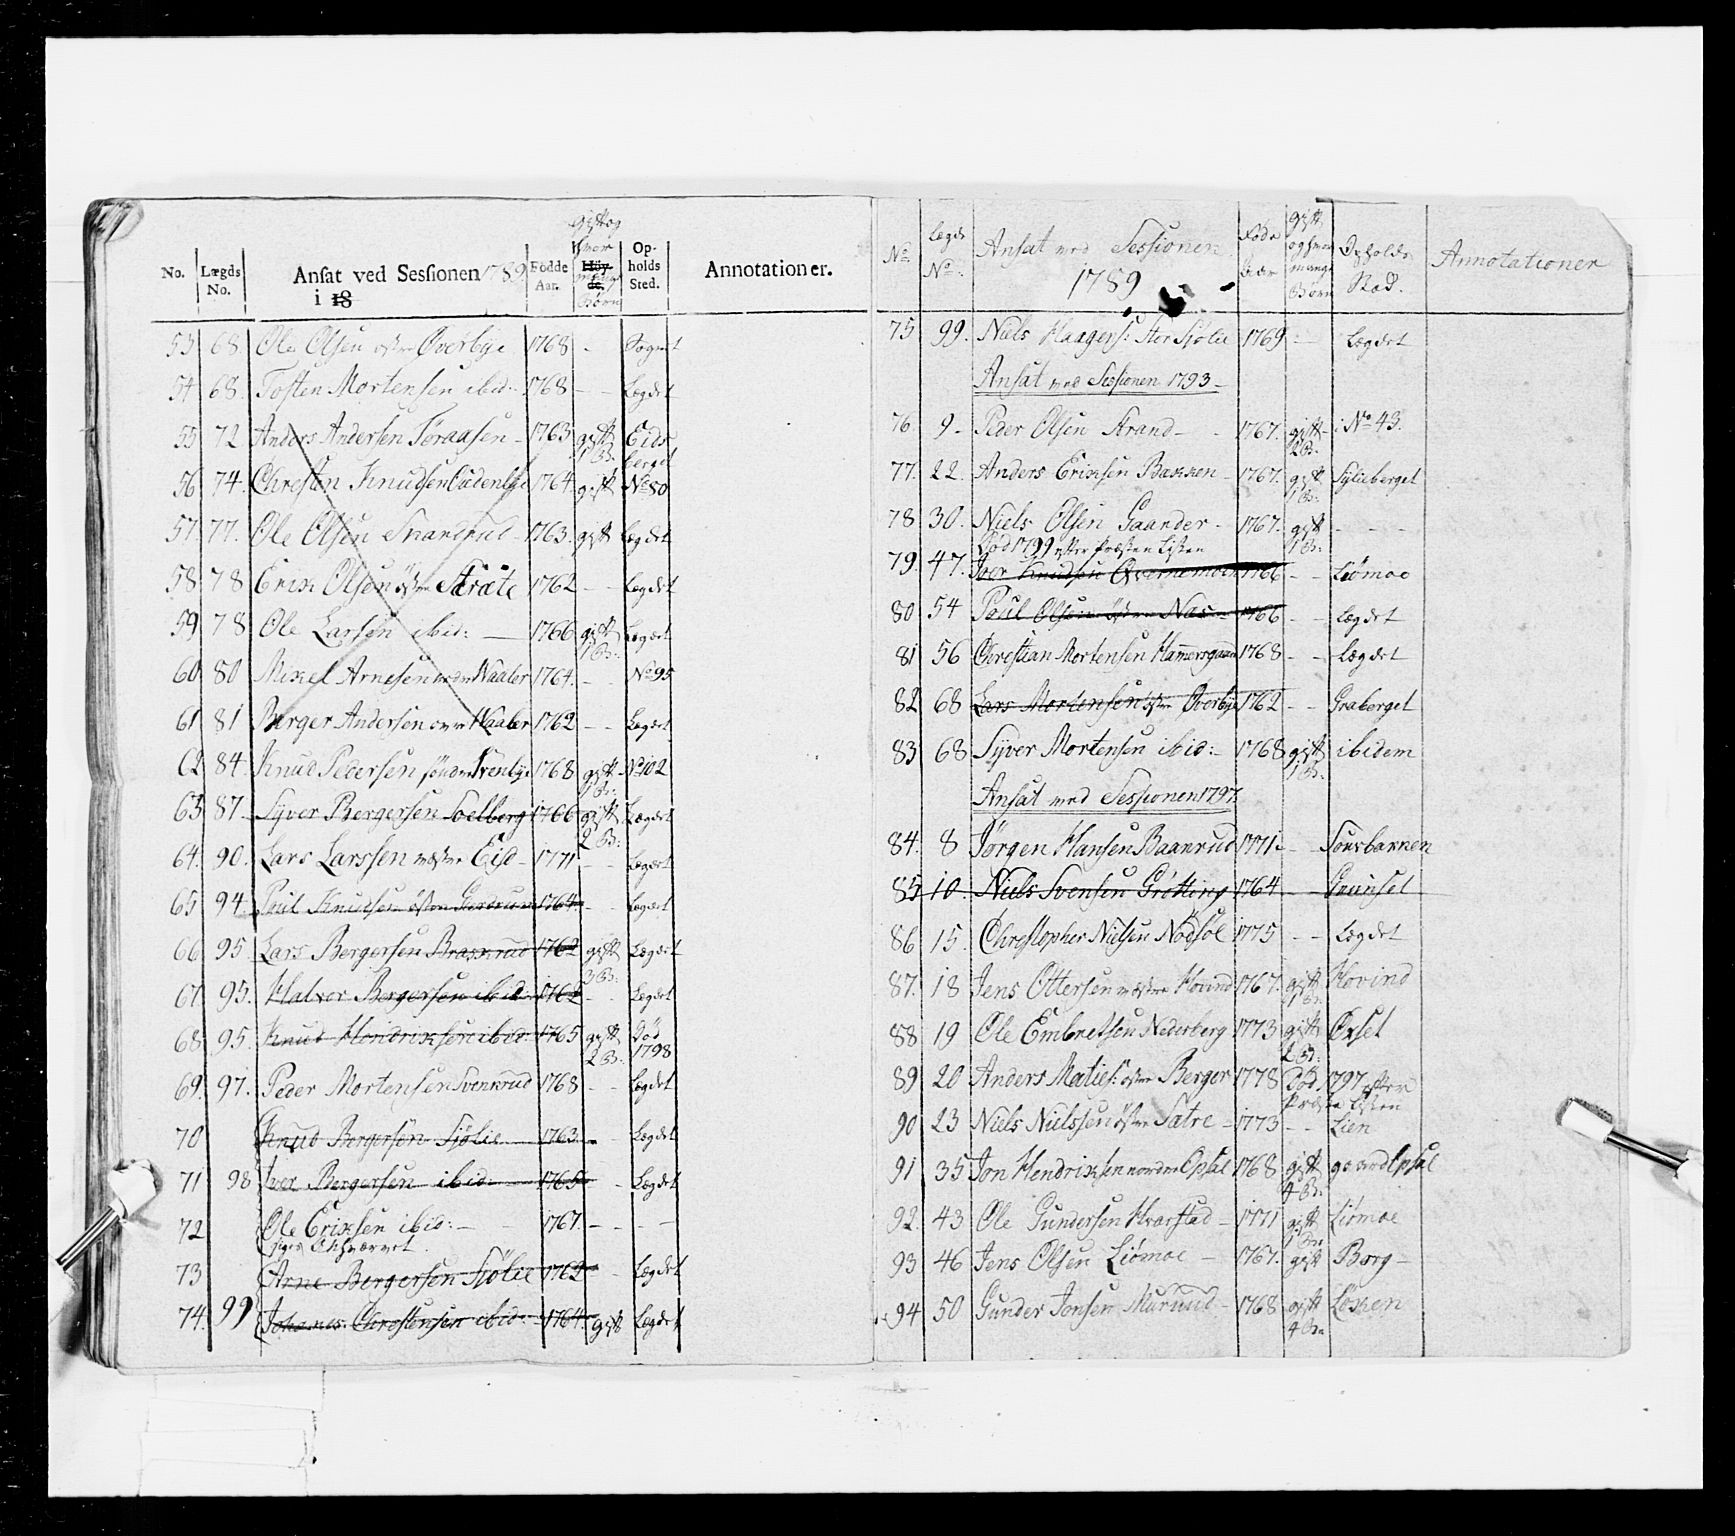 No. Lægds No. Ansat ved Sessionen 1789. i 18 Födde Aar. gift og hvor mange Børn Op- holds Sted. Annotationer.
53 68 Ole Olsen østre Øverbye 1768 - Sognet
54 68. Tosten Mortensen ibid: 1768 - - Lægdet
55 72 Anders Andersen Töraasen - 1763 gift 1 B: Eids berget
56 74. Christen Knudsen 1764 gift No 80
57 77. Ole Olsen 1763. gift Lægdet
58 78 Erik Olsen östre Særäte 1762 - - Lægdet
59 78 Ole Larsen ibid: - 1766 gift 1 B: Lægdet
60 80 Mikel Arnesen Waaler 1764. - - No 95
61 81 Berger Andersen Waaler 1762 - - Lægdet
62 84. Knud Pedersen søndre Svenbye 1768 gift 1 B: No 102
63 87. Syver Bergersen Soelberg 1766 gift 2 B: Lægdet
64. 90. Lars Larssen westre Eid - 1771 - - Lægdet
65 94. Poul Knudsen östre 1764. - - Lægdet
66 95. Lars Bergersen Braskrud 1762 gift 3 B: Lægdet
67. 95. Halvor Bergersen ibid: 1762 - - Lægdet
68 95. Knud Hendriksen ibid: 1765 gift 2 B: Død 1798
69. 97. Peder Mortensen Svenkrud 1768 - - Lægdet
70 Knud Bergersen Siølie 1763. - - Lægdet
71 98 Iver Bergersen ibid: 1765 - - Lægdet
72 Ole Eriksen ibid: - 1767. - - -
73 Arne Bergersen Siølie 1762 - - Lægdet
74. 99 Johannes Christensen ibid: - 1764. gift Lægdet
No. Lægds No. Ansat ved Sessionen 1789 Föde Aar gift og hvor mange Börn Opholds Stæd. Annotationer
75 99. Niels Haagens: Stor Siølie 1769 - Lægdet
Ansat ved Sessionen 1793 -
76 9 - Peder Olsen Strand - - 1767. gift 2 B. i No 43.
77. 22. Anders Eriksen Bakken - 1767. gift 1 B: Sylieberget
78 30. Niels Olsen Gaarder - 1767. gift 1 B: - - -
Död 1799 efter Præsten Listen
79. 47. Iver Knudsen Qvernemoen 1766 - - Liömoe
80 54 Poul Olsen östre Næs - 1766 - - Lægdet
81 56 Christian Mortensen Hammersgaard 1768 - - Lægdet
82 68 Lars Mortensen östre Øverbye 1762 - - Graberget
83 68 Syver Mortensen ibid: - 1768 gift 1 B: ibidem
Ansat ved Sessionen 1797.
84. 8 Jørgen Hansen Baanrud 1771. - -
85 10. Niels Svensen Grøtting 1764 - - Grunset
86 15. Christopher Nielsen Nodsöe 1775 - - Lægdet
87. 18 Jens Ottersen westre Hovind 1767. gift 1 Br. Hovind
88 19 Ole Embretsen Nederberg 1773 gift 2 B. Oxset
89 20 Anders Maties: östre Berger 1778 Död 1797 efter Præsten Listen
90 23 Niels Nielssen östre Satre - 1773 - - Lien
91 35 Jon Hendriksen nordre Opsal 1768 gift 4 B: Opsal
92. 43 Ole Gundersen Kvarstad - 1771 gift 1 Br Liömoe
93 46 Jens Olsen Liömoe - 1767. gift Borg -
94 50 Gunder Jonsen Muruud - 1768 gift 4 Br Løsken